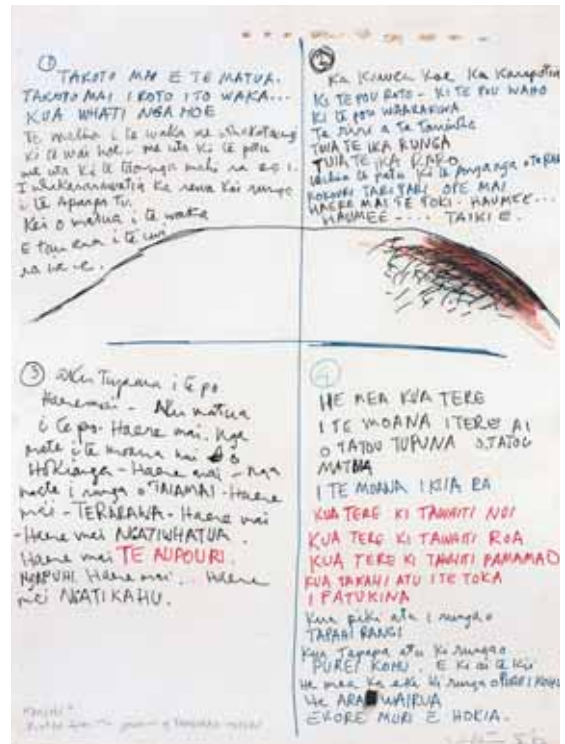 ①
TAKOTO MAI E TE MATUA.
TAKOTO MAI I ROTO I TO WAKA...
KUA WHATI NGA HOE
Te i te waka
ki te wai hoe - me uta ki te
me uta ki te
ka rewa kei runga
i te
Kei o matua i te waka
E i te iwi
②
Ka Kawea Koe Ka
KI TE POU ROTO - KI TE POU WAHO
KI TE POU WAARAKINA
Te a te Tamaiti
TUIA TE IKA RUNGA
TUIA TE IKA RARO
te ki te
TARI TARI OPE MAI
HAERE MAI TE TOKI - HAUMEE...
HAUMEE - ... TAIKI E.
③ Aku Tupuna i te po
Haere mai - Aku matua
i te po. Haere mai. Nga
mate i te moana nui o
HOKIANGA - Haere mai - nga
mate i runga o TAIAMAI - Haere
mai - TERARAWA - Haere mai
- Haere mai NGATIWHATUA.
Haere mai TE AUPOURI.
NGAPUHI. Haere mai... Haere
mai NGATIKAHU.
④
HE MEA KUA TERE
I TE MOANA ITERE AI
O TATOU TUPUNA O TATOU
MATUA
I TE MOANA I KIIA RA
KUA TERE KI TAWHITI NUI
KUA TERE KI TAWHITI ROA
KUA TERE KI TAWHITI PAMAMAO
KUA TAKAHI ATU I TE TOKA
I PATUKINA
Kua piki atu i runga o
TAPAHI RANGI
Kua Tapapa atu ki runga o
PUREI KOHU. E Ki ai te Kii
He mea ka eke ki runga o PUREI KOHU
He ARA WAIRUA
EKORE MURI E HOKIA.